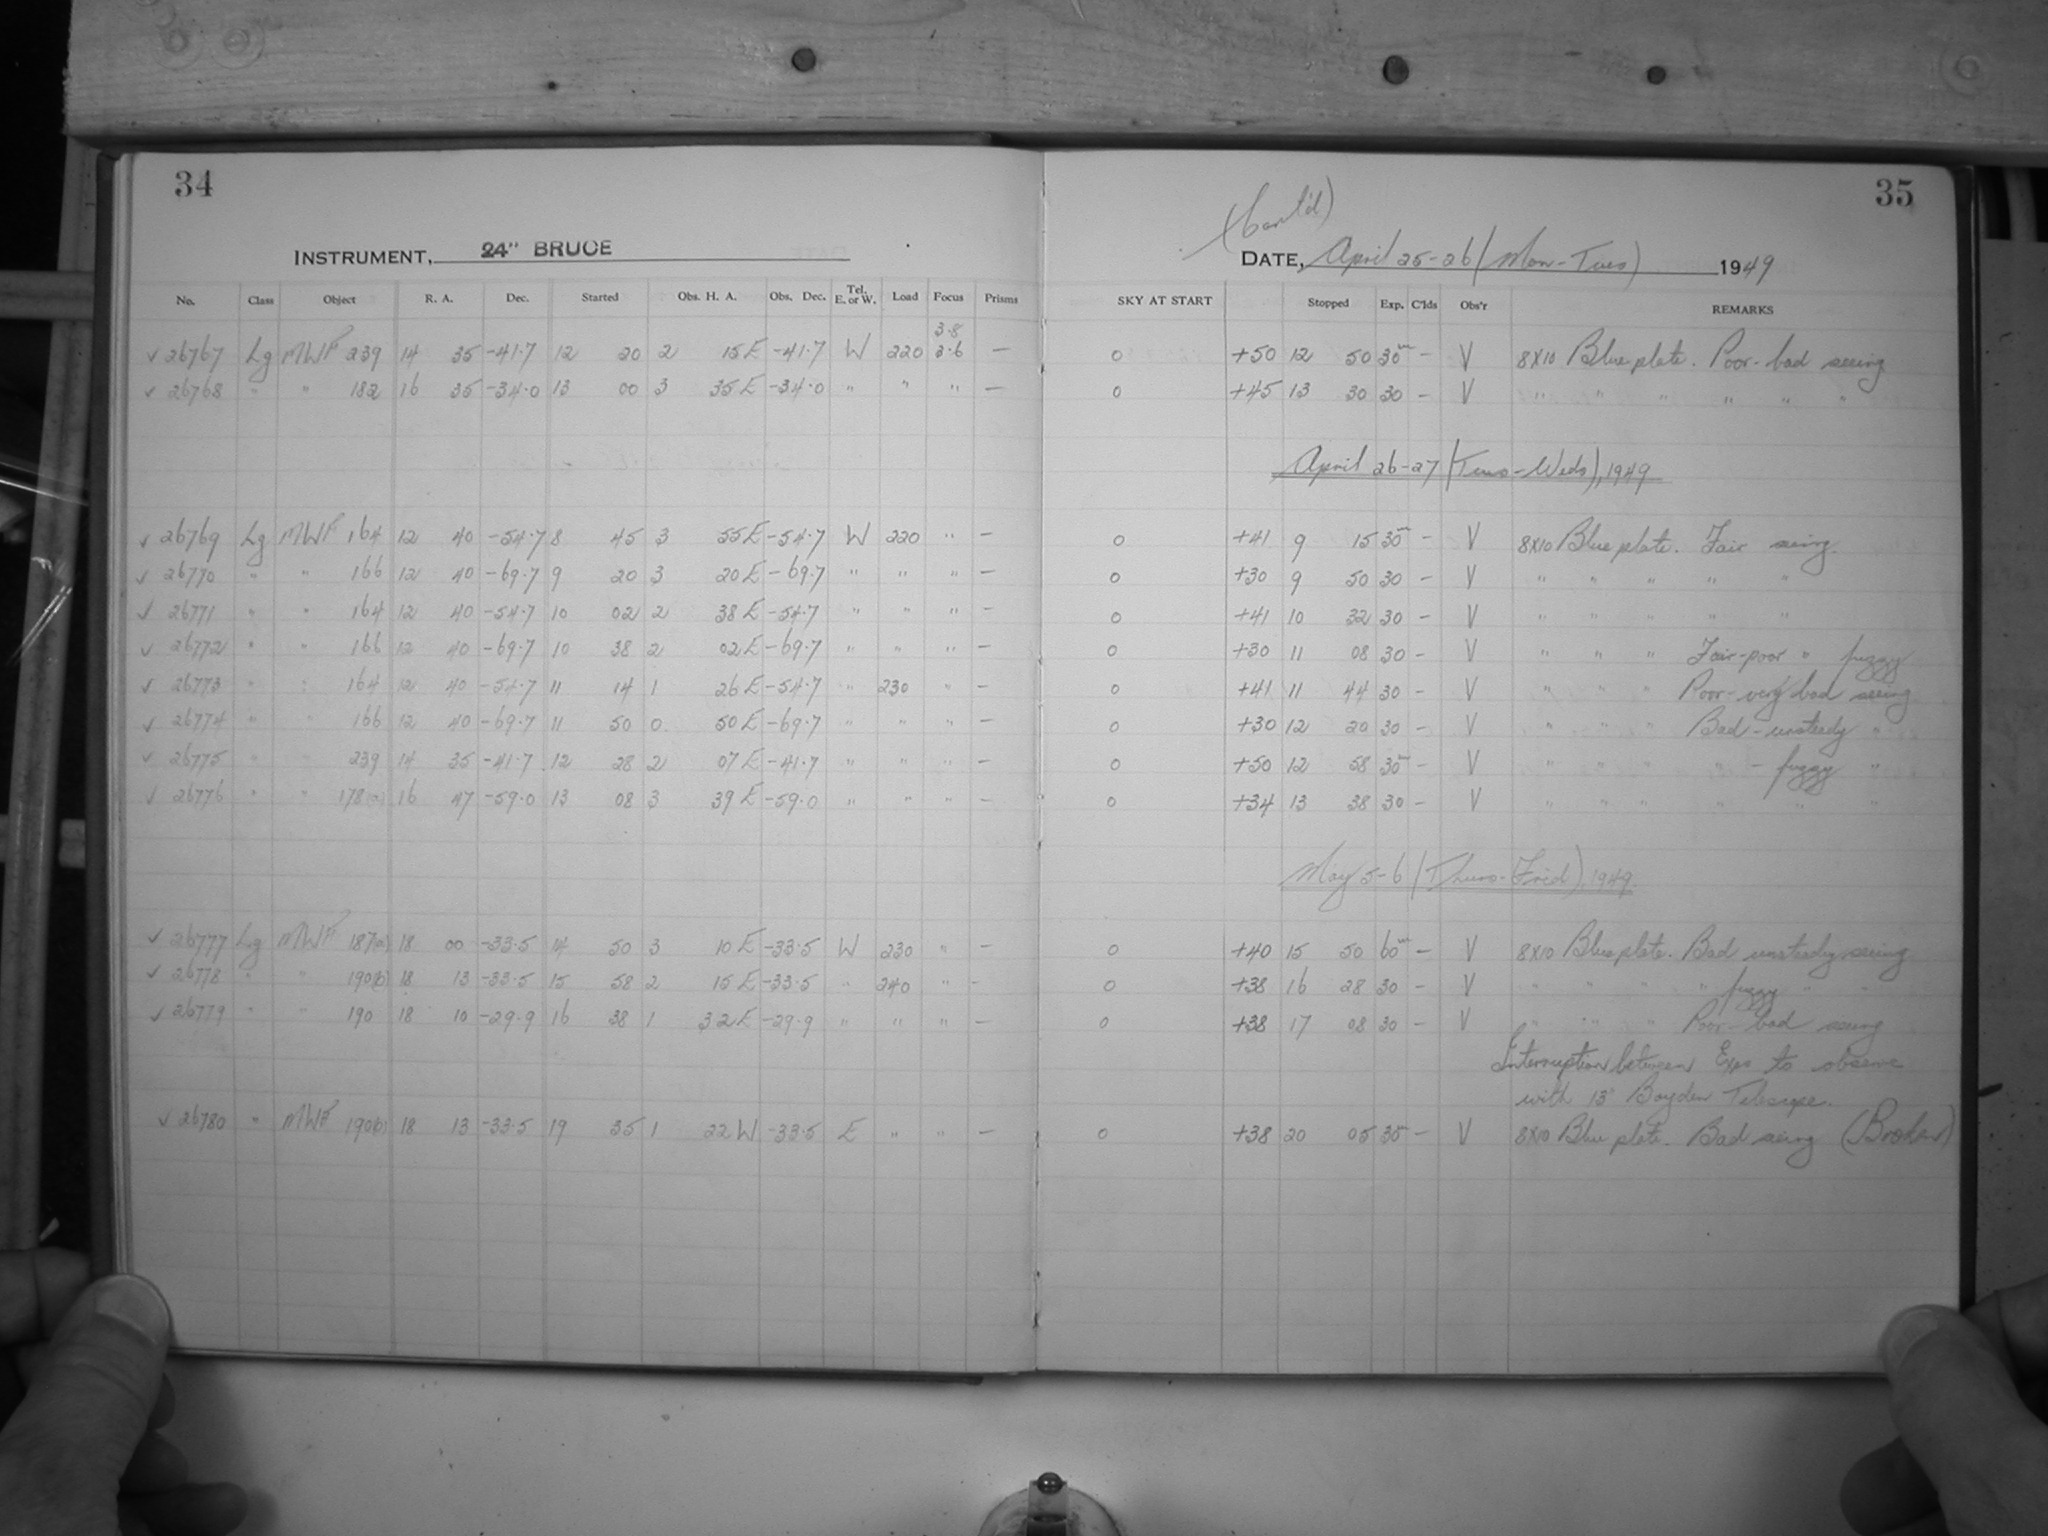 34
INSTRUMENT, 24" BRUCE
No. Class Object R. A. Dec. Started Obs. H. A. Obs. Dec. Tel. E. or W. Load Focus Prisms
3.8
✓ 26767 Lg MWF 239 14 35 -41.7 12 20 2 15 E -41.7 W 220 3.6 —
✓ 26768 " " 182 16 35 -34.0 13 00 3 35 E -34.0 " " " —
✓ 26769 Lg MWF 164 12 40 -54.7 8 45 3 55 E -54.7 W 220 " —
✓ 26770 " " 166 12 40 -69.7 9 20 3 20 E -69.7 " " " —
✓ 26771 " " 164 12 40 -54.7 10 02 2 38 E -54.7 " " " —
✓ 26772 " " 166 12 40 -69.7 10 38 2 02 E -69.7 " " " —
✓ 26773 " " 164 12 40 -54.7 11 14 1 26 E -54.7 " 230 " —
✓ 26774 " " 166 12 40 -69.7 11 50 0 50 E -69.7 " " " —
✓ 26775 " " 239 14 35 -41.7 12 28 2 07 E -41.7 " " " —
✓ 26776 " " 178(a) 16 47 -59.0 13 08 3 39 E -59.0 " " " —
✓ 26777 Lg MWF 187(a) 18 00 -33.5 14 50 3 10 E -33.5 W 230 " —
✓ 26778 " " 190(b) 18 13 -33.5 15 58 2 15 E -33.5 " 240 " —
✓ 26779 " " 190 18 10 -29.9 16 38 1 32 E -29.9 " " " —
✓ 26780 " MWF 190(b) 18 13 -33.5 19 35 1 22 W -33.5 E " " —
35
(Cont'd)
DATE, April 25-26 (Mon-Tues) 1949
SKY AT START Stopped Exp. C'lds Obs'r REMARKS
0 +50 12 50 30m — V 8x10 Blue plate. Poor-bad seeing
0 +45 13 30 30 — V " " " " " "
April 26-27 (Tues-Weds), 1949
0 +41 9 15 30m — V 8x10 Blue plate. Fair seeing.
0 +30 9 50 30 — V " " " " "
0 +41 10 32 30 — V " " " " "
0 +30 11 08 30 — V " " " Fair-poor " fuzzy
0 +41 11 44 30 — V " " " Poor-very bad seeing
0 +30 12 20 30 — V " " " Bad-unsteady "
0 +50 12 58 30 — V " " " " - fuzzy "
0 +34 13 38 30 — V " " " " " "
May 5-6 (Thurs-Frid), 1949
0 +40 15 50 60m — V 8x10 Blue plate. Bad unsteady seeing
0 +38 16 28 30 — V " " " " fuzzy " "
0 +38 17 08 30 — V " " " Poor-bad seeing
Interruption between Exps to observe
with 13" Boyden Telescope.
0 +38 20 05 30 — V 8x10 Blue plate. Bad seeing (Broken)